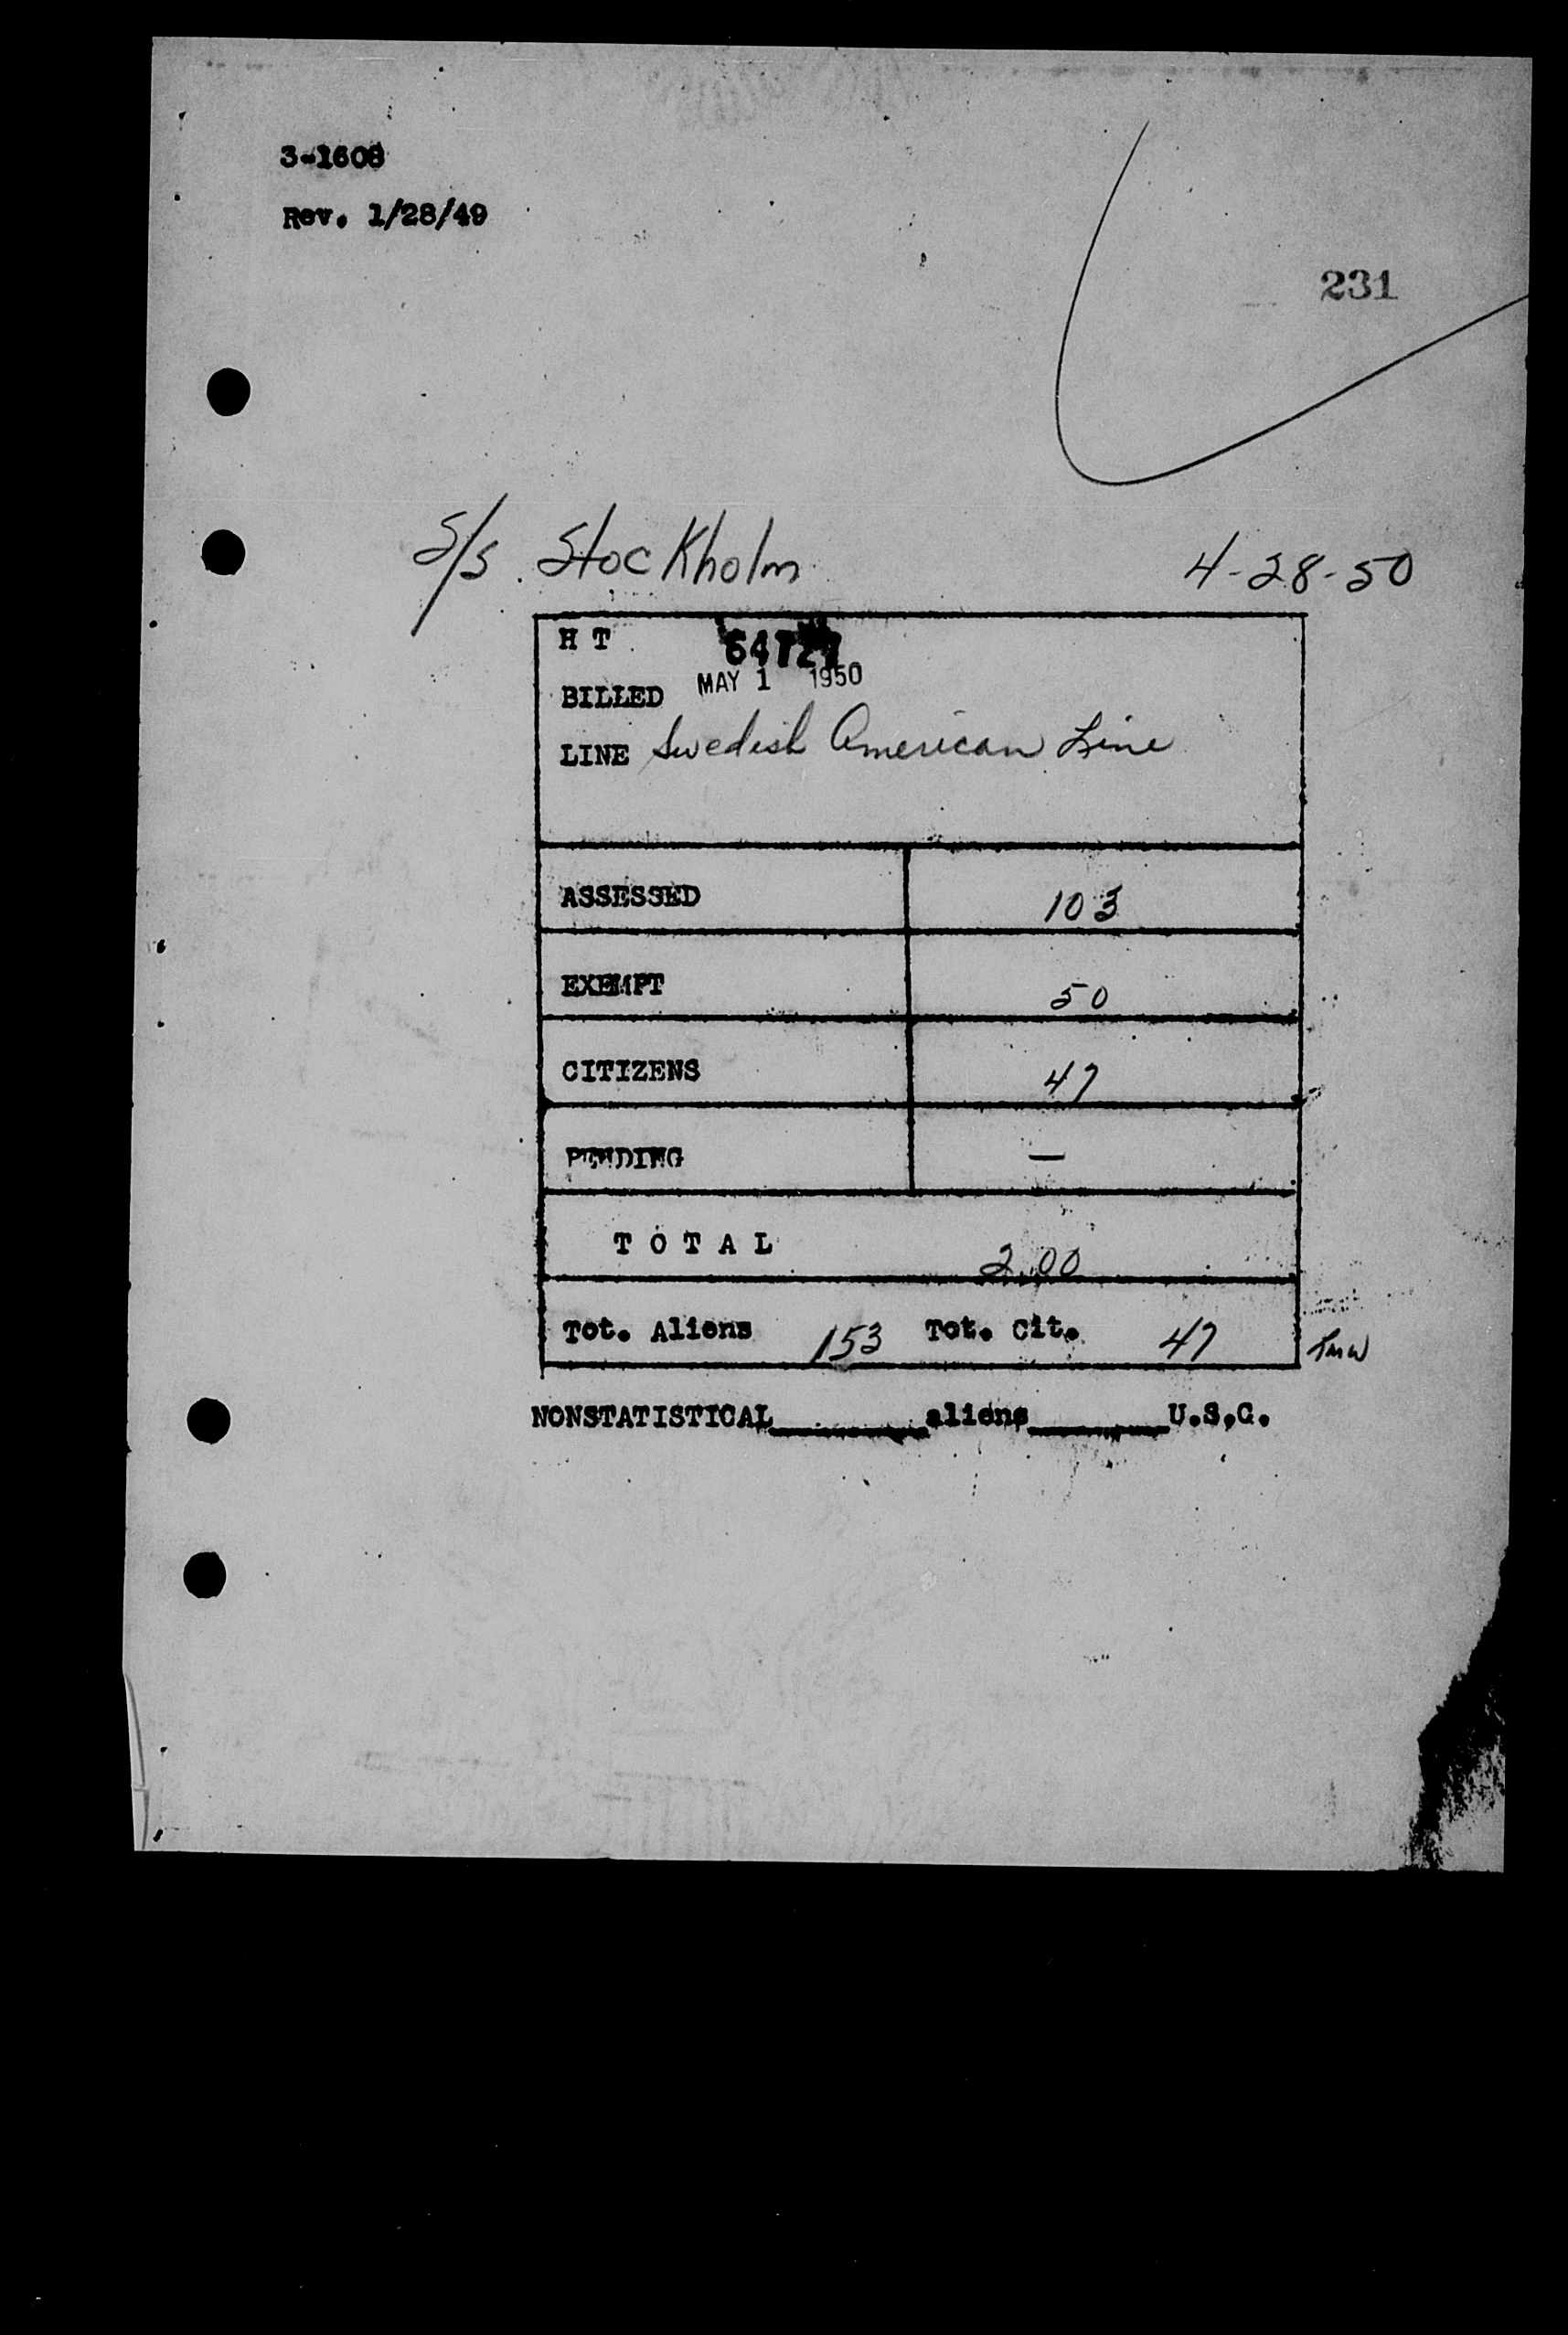 3-1608
Rev. 1/28/49
231
S/S Stockholm 4-28-50
H T
BILLED MAY 1 1950
LINE Swedish American Line
ASSESSED 103
EXEMPT 50
CITIZENS 47
PENDING —
T O T A L 200
Tot. Aliens 153 Tot. Cit. 47 TMW
NONSTATISTICAL________aliens________U.S.C.